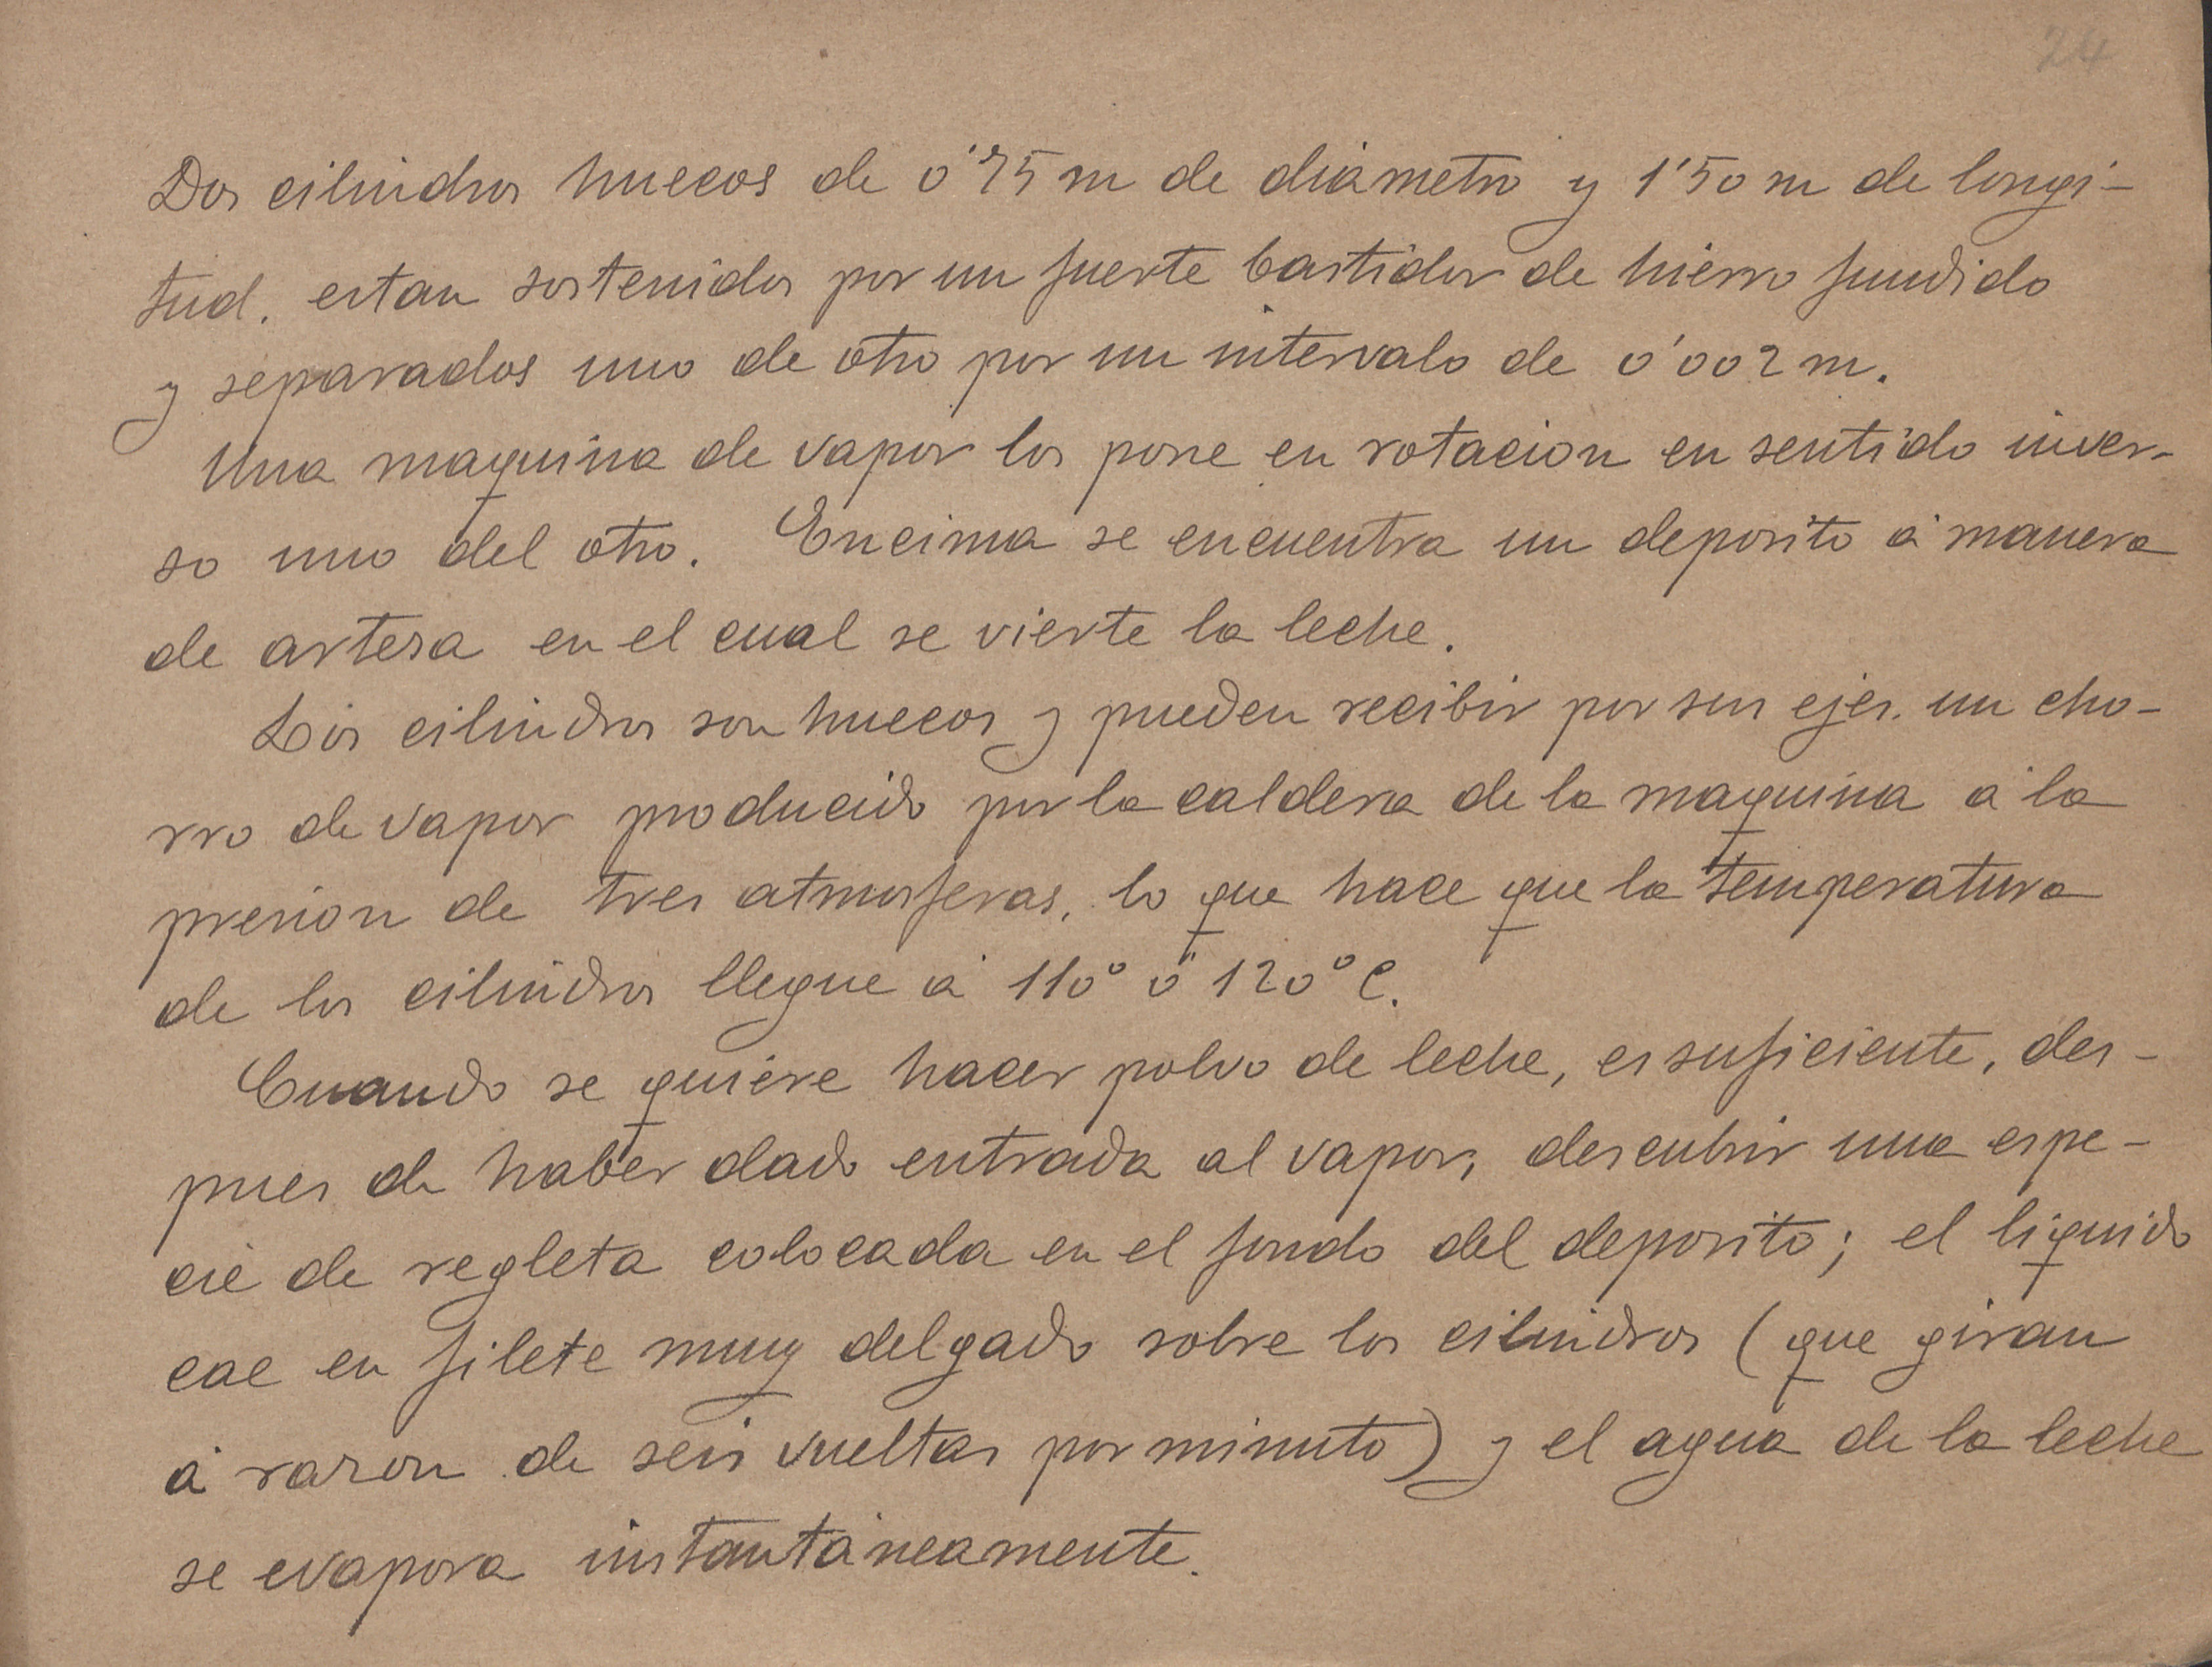 24
Dos cilindros huecos de 0'75 m de diámetro y 1'50 m de longi-
tud. estan sostenidos por un fuerte bastidor de hierro fundido
y separados uno de otro por un intervalo de 0'002 m.
Una maquina de vapor los pone en rotacion en sentido inver-
so uno del otro. Encima se encuentra un deposito á manera
de artesa en el cual se vierte la leche.
Los cilindros son huecos y pueden recibir por sus ejes. un cho-
rro de vapor producido por la caldera de la maquina á la
presion de tres atmosferas, lo que hace que la temperatura
de los cilindros llegue á 110° ó 120° C.
Cuando se quiere hacer polvo de leche, es suficiente, des-
pues de haber dado entrada al vapor, descubrir una espe-
cie de regleta colocada en el fondo del deposito; el liquido
cae en filete muy delgado sobre los cilindros (que giran
á razon de seis vueltas por minuto) y el agua de la leche
se evapora instantáneamente.